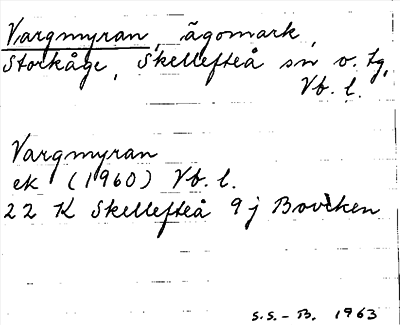 Vargmyran, ägomark,
Storkåge, Skellefteå sn o. tg,
Vb. l.
Vargmyran
ek (1960) Vb. l.
22 K Skellefteå 9j Boviken
S.S.-B. 1963